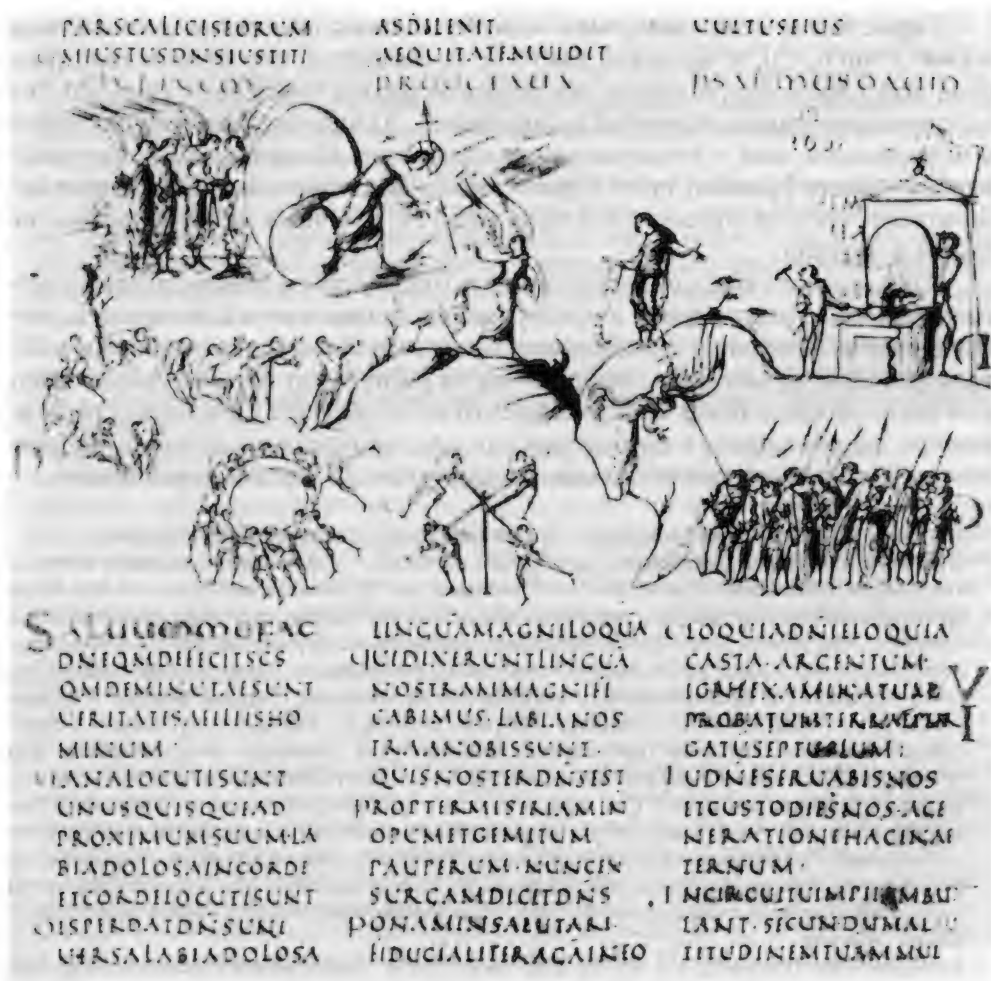 PARSCALICISEORUM
MIUSTUSDNSIUSTITI
ASDILEXIT
AEQUITATEMUIDIT
CULTUSEIUS
SALUUMMEFAC
DNEQMDEFECITSCS
QMDEMINUTAESUNT
UERITATESAFILIISHO
MINUM·
UANALOCUTISUNT
UNUSQUISQUEAD
PROXIMUMSUUM·LA
BIADOLOSAINCORDE
ETCORDELOCUTISUNT
DISPERDATDNSUNI
UERSALABIADOLOSA
LINGUAMAGNILOQUA
QUIDIXERUNTLINGUA
NOSTRAMMAGNIFI
CABIMUS·LABIANOS
TRAANOBISSUNT·
QUISNOSTERDNSEST
PROPTERMISERIAMIN
OPUMETGEMITUM
PAUPERUM·NUNCEX
SURGAMDICITDNS
PONAMINSALUTARI·
FIDUCIALITERAGAINEO
ELOQUIADNIELOQUIA
CASTA·ARGENTUM·
IGNEEXAMINATUM
PROBATUMTERRAEPUR
GATUSEPTUPLUM:
TUDNESERUABISNOS
ETCUSTODIESNOS·AGE
NERATIONEHACINAE
TERNUM·
INCIRCUITUIMPIIAMBU
LANT·SECUNDUMAL
TITUDINEMTUAMMUL